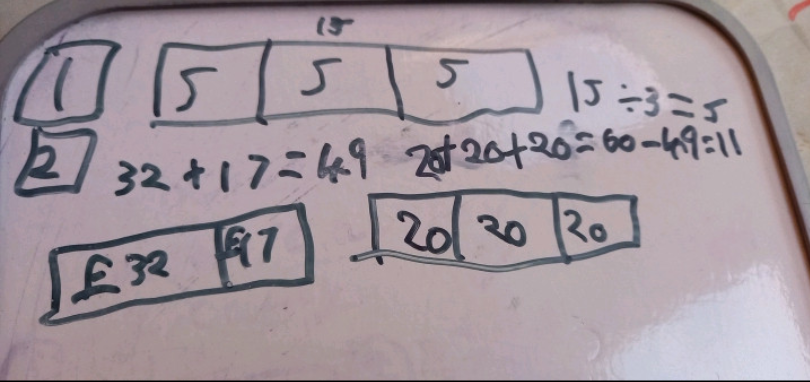 15
1 5 5 5 15 ÷ 3 = 5
2 32 + 17 = 49 20 + 20 + 20 = 60 - 49 = 11
£32 £17 20 20 20